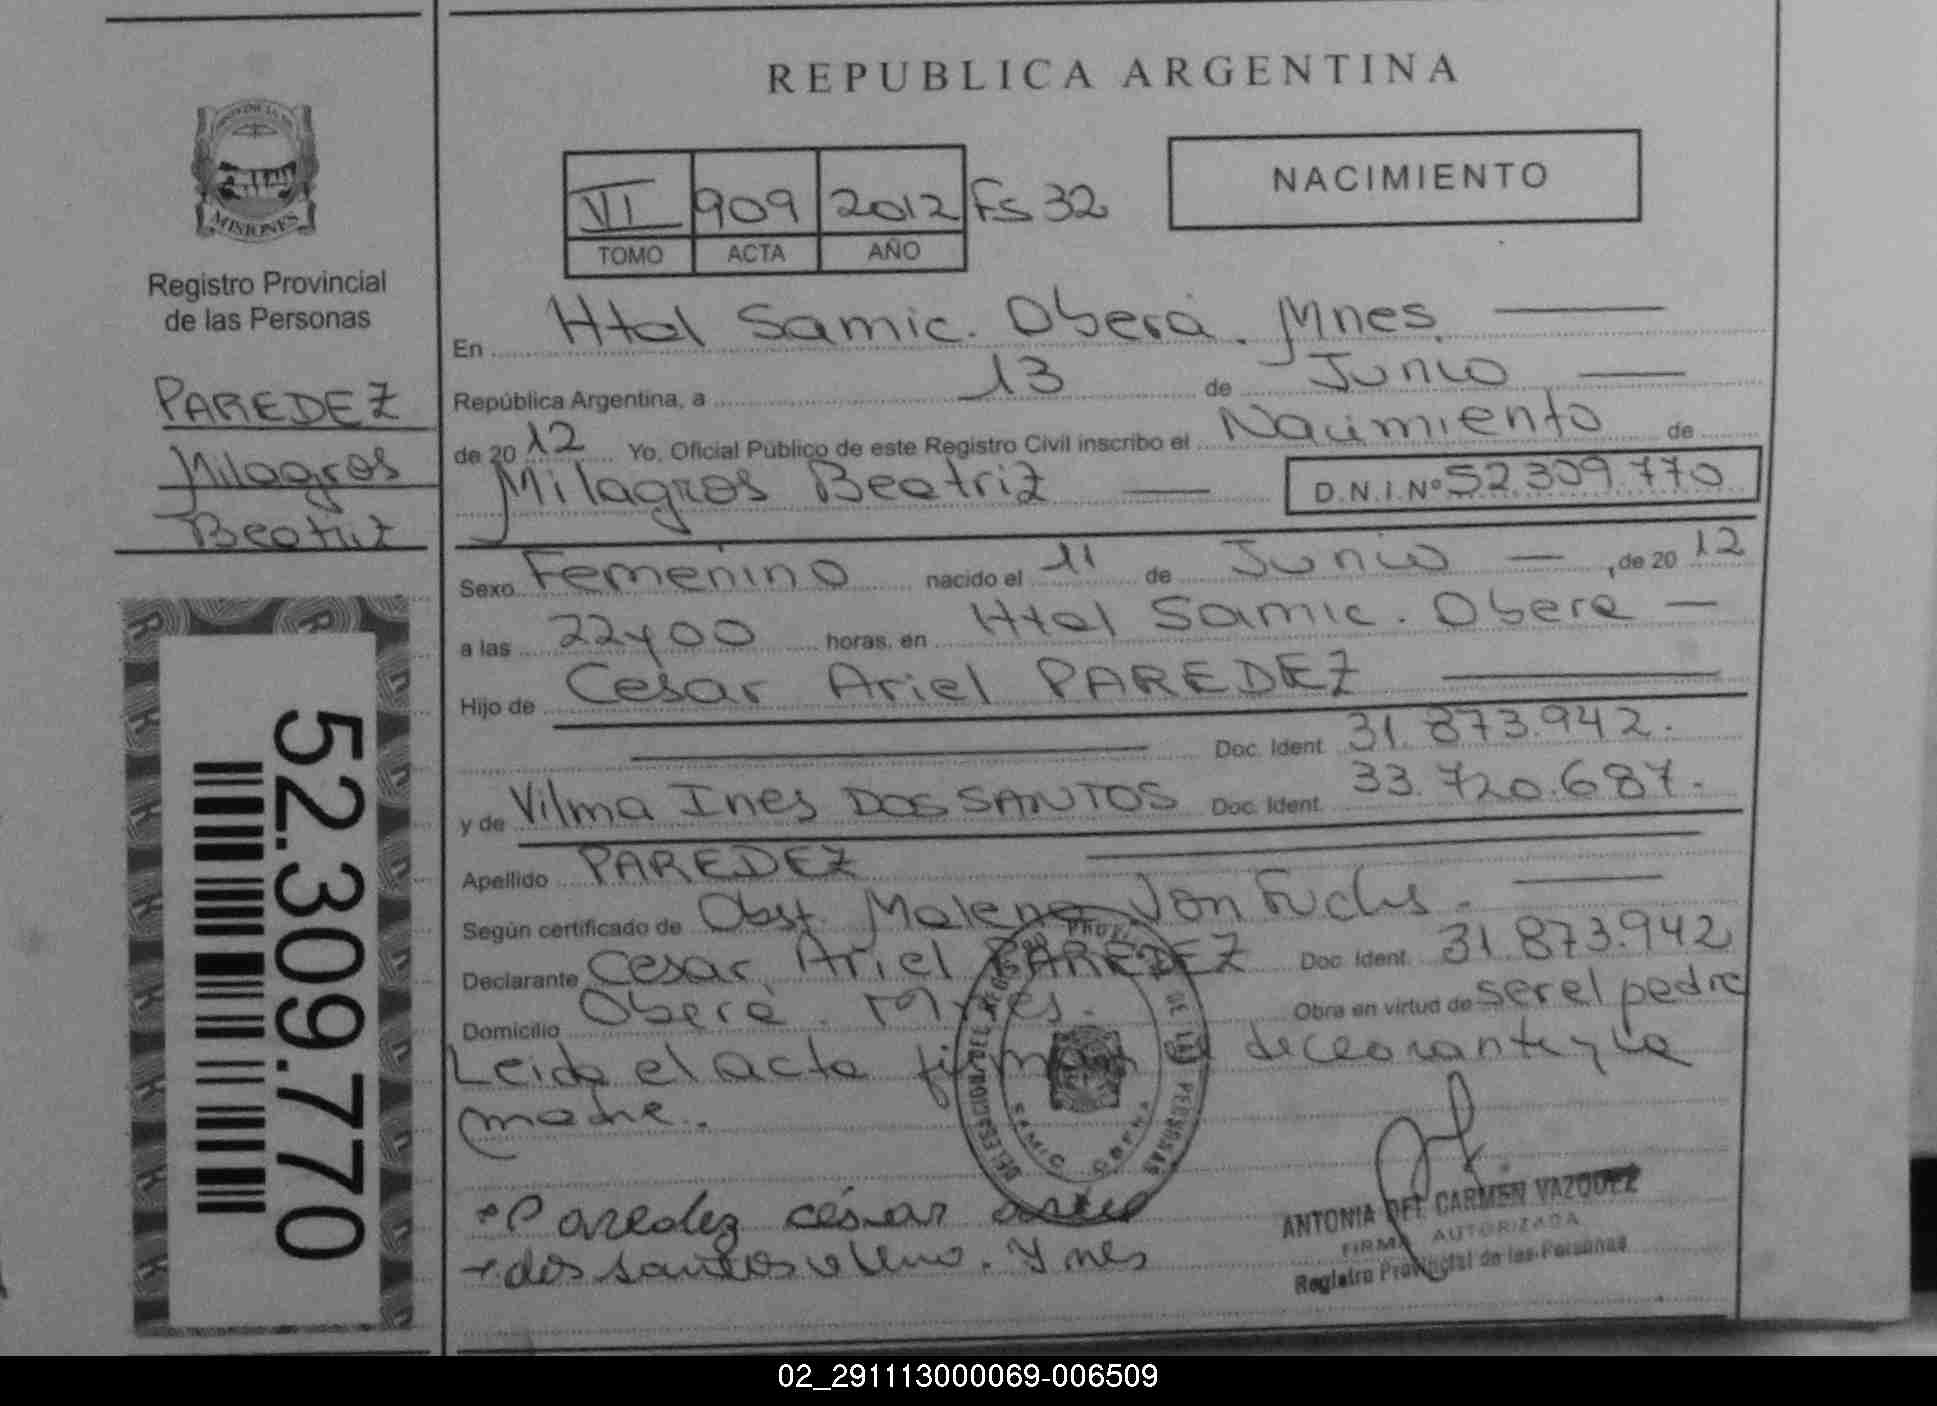 REPUBLICA ARGENTINA
PROVINCIA DE
MISIONES
Registro Provincial
de las Personas
PAREDEZ
Milagros
Beatriz
52.309.770
VI 909 2012 Fs 32
TOMO ACTA AÑO
NACIMIENTO
En Htal Samic. Oberá. Mnes.
República Argentina, a 13 de Junio
de 2012 Yo, Oficial Público de este Registro Civil inscribo el Nacimiento de
Milagros Beatriz D.N.I. Nº 52.309.770
Sexo Femenino nacido el 11 de Junio , de 2012
a las 22 y 00 horas, en Htal Samic. Obera
Hijo de Cesar Ariel PAREDEZ
Doc. Ident. 31.873.942.
y de Vilma Ines DOS SANTOS Doc. Ident. 33.720.687.
Apellido PAREDEZ
Según certificado de Obst. Malena Von Fuchs.
Declarante Cesar Ariel PAREDEZ Doc. Ident. 31.873.942
Domicilio Oberá. Mnes. Obra en virtud de ser el padre
Leida el acta firman el declarante y la
madre.
DELEGACION DEL REGISTRO PROV. DE LAS PERSONAS
SAMIC OBERA
Paredez césar
dos santos Ynes
ANTONIA DEL CARMEN VAZQUEZ
FIRMA AUTORIZADA
Registro Provincial de las Personas
02_291113000069-006509